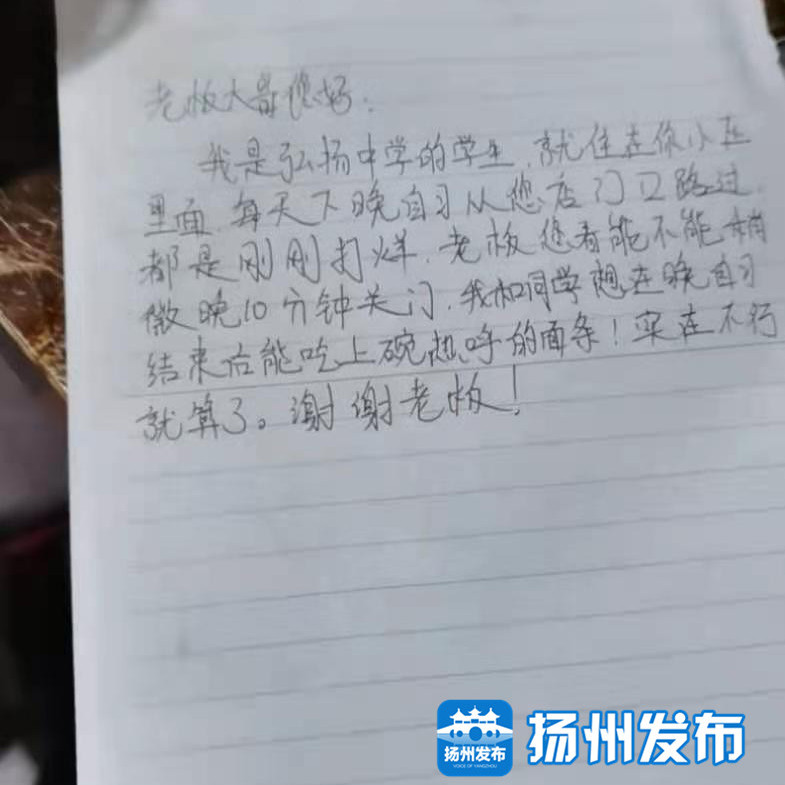 老板大哥您好：
我是弘扬中学的学生，就住在你小区
里面，每天下晚自习从您店门口路过，
都是刚刚打烊，老板您看能不能稍
微晚10分钟关门，我和同学想在晚自习
结束后能吃上碗热呼的面条！实在不行
就算了。谢谢老板！
扬州发布
VOICE OF YANGZHOU
扬州发布